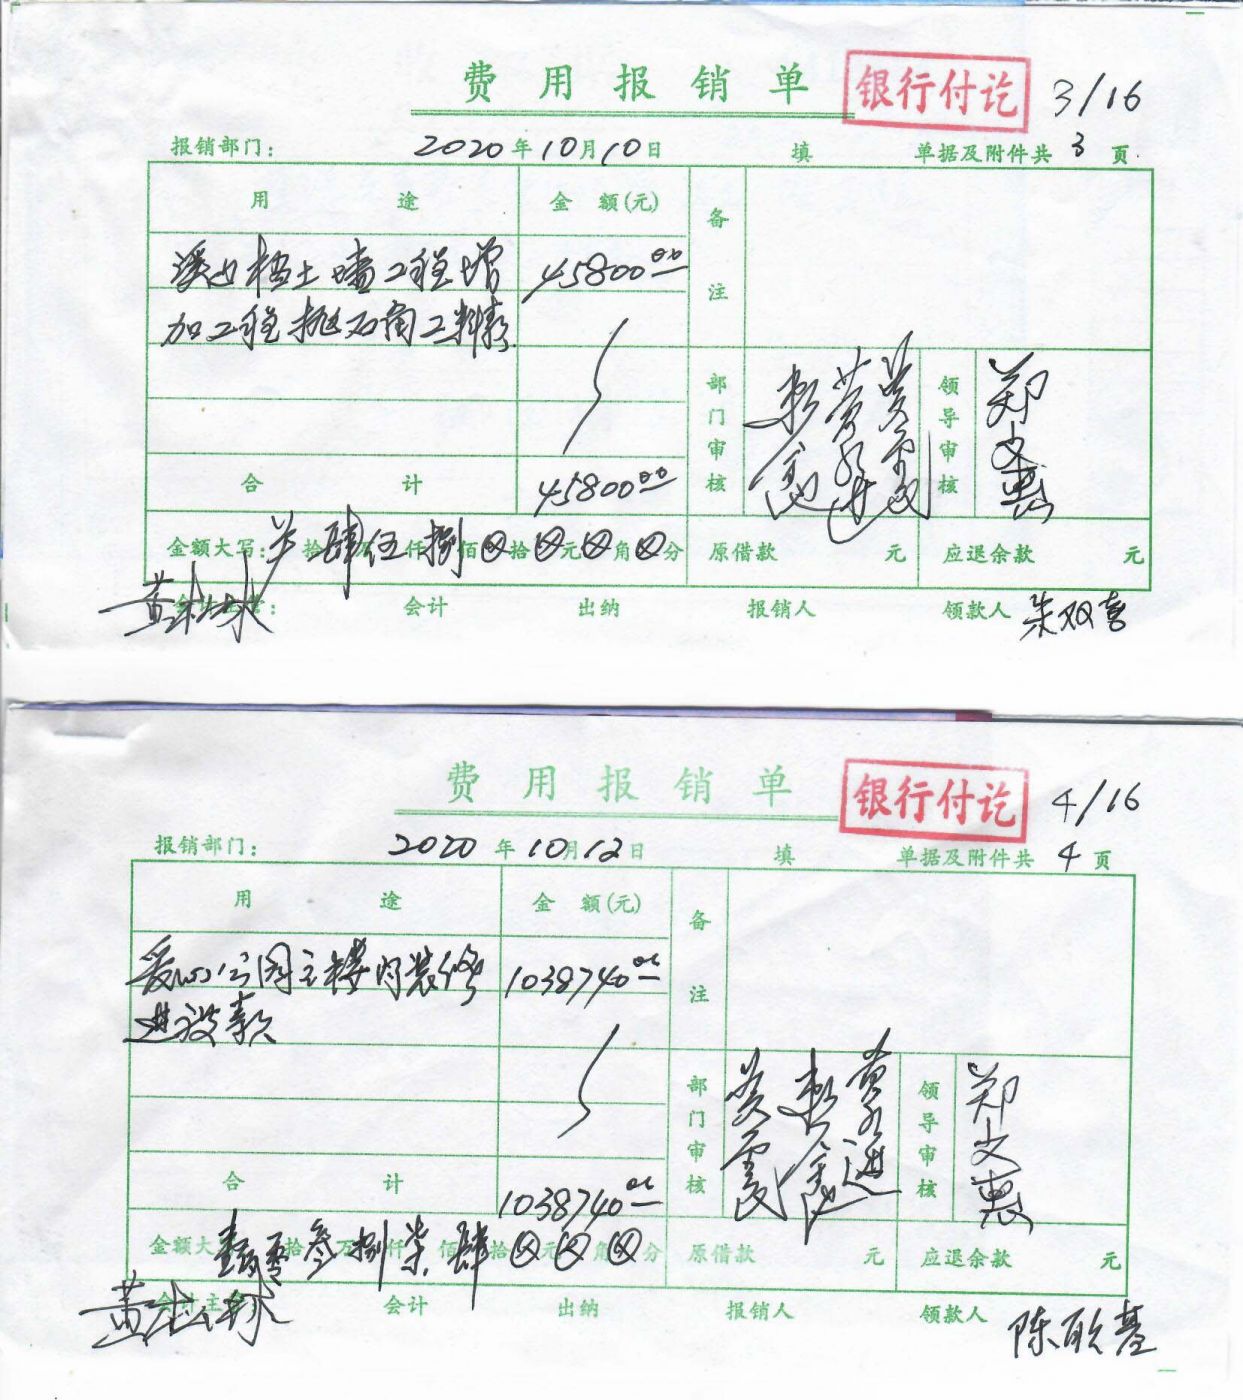 费用报销单 银行付讫 3/16
报销部门: 2020年10月10日 填 单据及附件共3页
用途 金额(元) 备注
溪边档土墙工程增 45800.00
加工程抛石角工料款
部门审核 领导审核 郑文惠
合计 45800.00
金额大写: 拾肆万伍仟捌佰⊗拾⊗元⊗角⊗分 原借款 元 应退余款 元
会计 出纳 报销人 领款人 朱双喜
费用报销单 银行付讫 4/16
报销部门: 2020年10月12日 填 单据及附件共4页
用途 金额(元) 备注
爱心公园主楼内装修 1038740.00
进设款
部门审核 领导审核 郑文惠
合计 1038740.00
金额大写 壹佰零拾叁万捌仟柒佰肆拾⊗元⊗角⊗分 原借款 元 应退余款 元
会计主 会计 出纳 报销人 领款人 陈联基